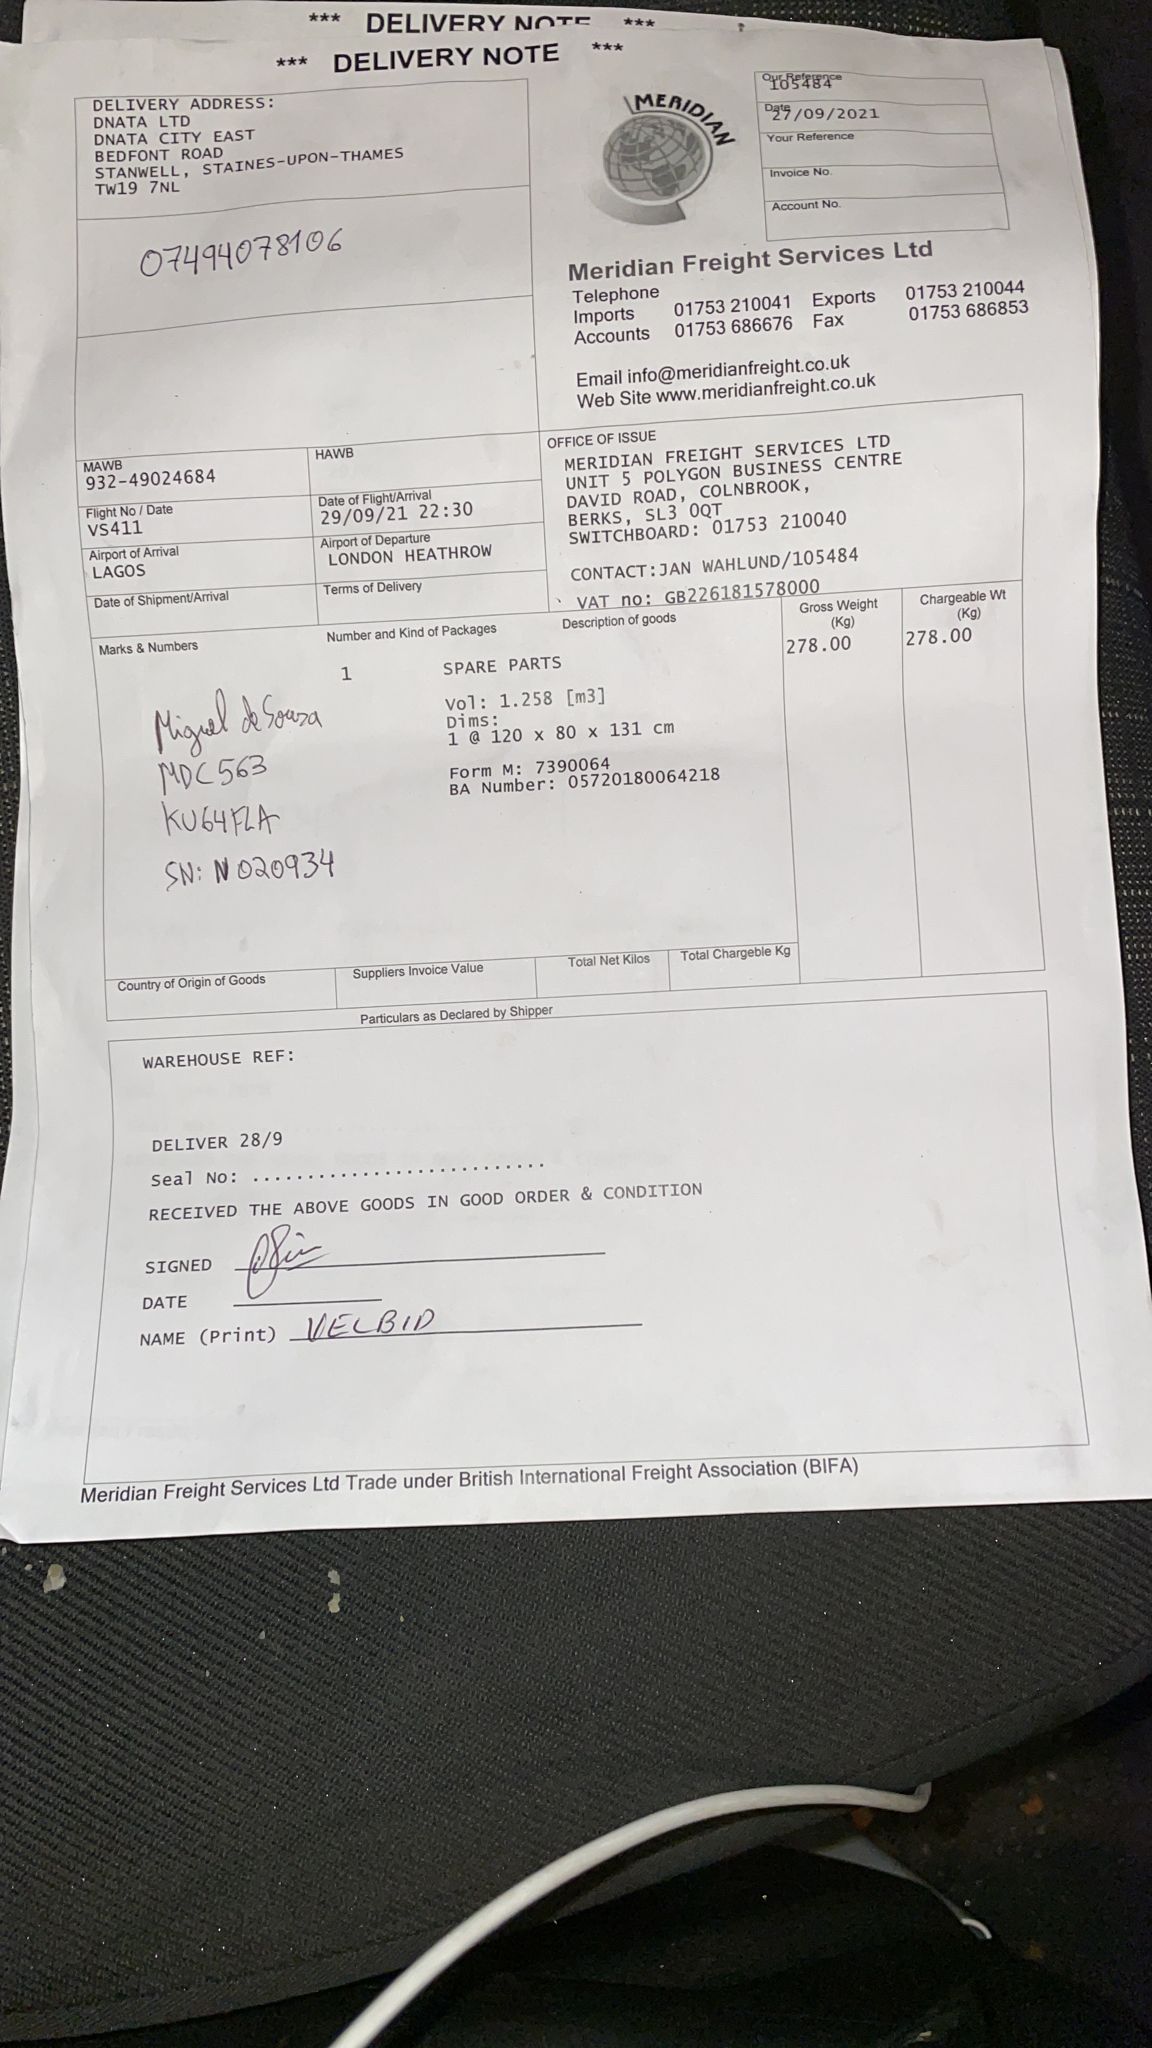 *** DELIVERY NOTE ***
*** DELIVERY NOTE ***
DELIVERY ADDRESS:
DNATA LTD
DNATA CITY EAST
BEDFONT ROAD
STANWELL, STAINES-UPON-THAMES
TW19 7NL
07494078106
MERIDIAN
Our Reference
105484
Date
27/09/2021
Your Reference
Invoice No.
Account No.
Meridian Freight Services Ltd
Telephone
Imports 01753 210041 Exports 01753 210044
Accounts 01753 686676 Fax 01753 686853
Email info@meridianfreight.co.uk
Web Site www.meridianfreight.co.uk
MAWB
932-49024684
HAWB
Flight No / Date
VS411
Date of Flight/Arrival
29/09/21 22:30
Airport of Arrival
LAGOS
Airport of Departure
LONDON HEATHROW
Date of Shipment/Arrival
Terms of Delivery
OFFICE OF ISSUE
MERIDIAN FREIGHT SERVICES LTD
UNIT 5 POLYGON BUSINESS CENTRE
DAVID ROAD, COLNBROOK,
BERKS, SL3 0QT
SWITCHBOARD: 01753 210040
CONTACT:JAN WAHLUND/105484
VAT no: GB226181578000
Marks & Numbers
Number and Kind of Packages
Description of goods
Gross Weight
(Kg)
Chargeable Wt
(Kg)
1 SPARE PARTS 278.00 278.00
Vol: 1.258 [m3]
Dims:
1 @ 120 x 80 x 131 cm
Form M: 7390064
BA Number: 05720180064218
Miguel de Souza
MDC563
KU64FLA
SN: N020934
Country of Origin of Goods
Suppliers Invoice Value
Total Net Kilos
Total Chargeble Kg
Particulars as Declared by Shipper
WAREHOUSE REF:
DELIVER 28/9
Seal No: ...........................
RECEIVED THE ABOVE GOODS IN GOOD ORDER & CONDITION
SIGNED
DATE
NAME (Print) VELBID
Meridian Freight Services Ltd Trade under British International Freight Association (BIFA)